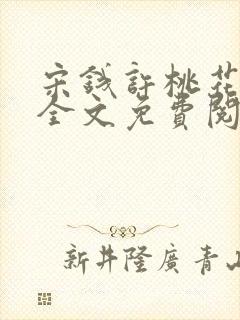 宋錢許桃花
全文免費閱
新井隆廣青山